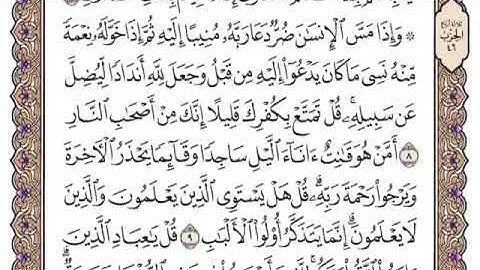 ثلاثة أرباع
الحزب
٤٦
۞ وَإِذَا مَسَّ ٱلْإِنسَٰنَ ضُرٌّ دَعَا رَبَّهُۥ مُنِيبًا إِلَيْهِ ثُمَّ إِذَا خَوَّلَهُۥ نِعْمَةً
مِّنْهُ نَسِىَ مَا كَانَ يَدْعُوٓا۟ إِلَيْهِ مِن قَبْلُ وَجَعَلَ لِلَّهِ أَندَادًا لِّيُضِلَّ
عَن سَبِيلِهِۦ ۚ قُلْ تَمَتَّعْ بِكُفْرِكَ قَلِيلًا إِنَّكَ مِنْ أَصْحَٰبِ ٱلنَّارِ
٨ أَمَّنْ هُوَ قَٰنِتٌ ءَانَآءَ ٱلَّيْلِ سَاجِدًا وَقَآئِمًا يَحْذَرُ ٱلْءَاخِرَةَ
وَيَرْجُوا۟ رَحْمَةَ رَبِّهِۦ ۗ قُلْ هَلْ يَسْتَوِى ٱلَّذِينَ يَعْلَمُونَ وَٱلَّذِينَ
لَا يَعْلَمُونَ ۗ إِنَّمَا يَتَذَكَّرُ أُو۟لُوا۟ ٱلْأَلْبَٰبِ ٩ قُلْ يَٰعِبَادِ ٱلَّذِينَ